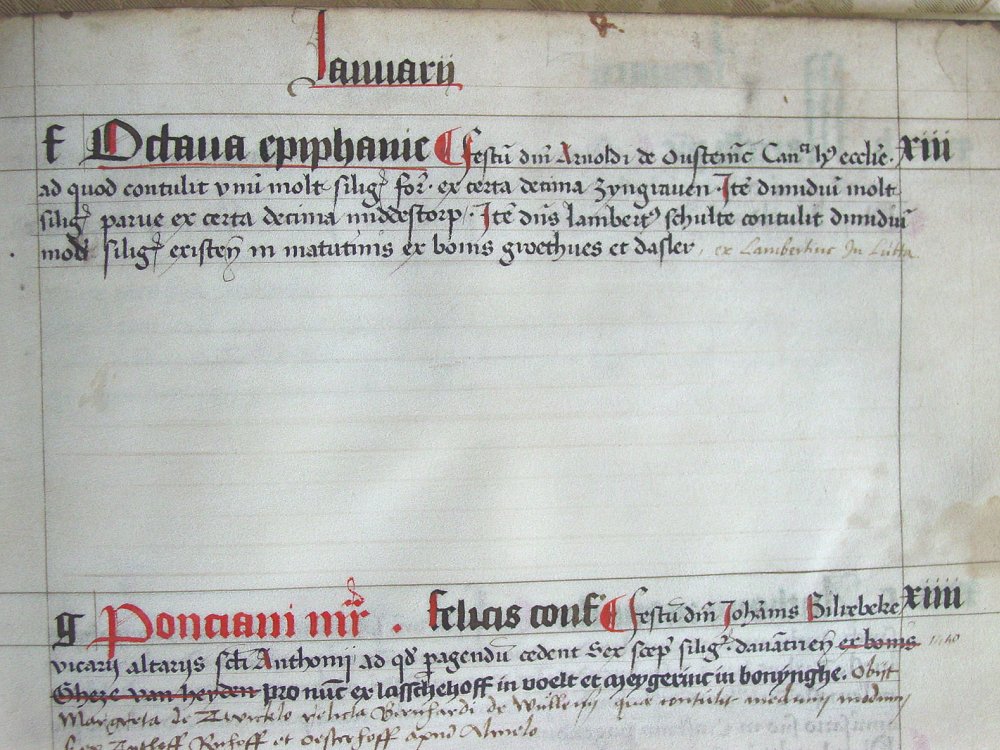 Januarij
f Octaua epiphanie ¶ Festū dnī Arnoldi de Oustēic Canᵃ hꝰ ecclie. xiii
ad quod contulit vnū molt siligꝭ forꝭ. ex certa decima zyngrauen. Itē dimidiū molt
siligꝭ parue ex certa decima middestorp. Itē dn̄s lambertꝰ schulte contulit dimidiū
mod siligꝭ existen in matutinis ex bonis gwethues et dasler, ex Lambertinc In Lutta.
g Ponciani mr̄ꝭ. Felicis conf ¶ Festū dnī Johānis Biluebeke xiiii
vicarij altarijs scti Anthonij ad qd pagendū cedent Sex scepꝭ siligꝭ. ex bonis
Gheze van heyden pro nūc ex lasschehoff in voelt et meygerinc in bonynghe. Obijt
Margreta de relicta Bernhardi de Wullen que contulit medium modium
et oesterhoff apud Almelo